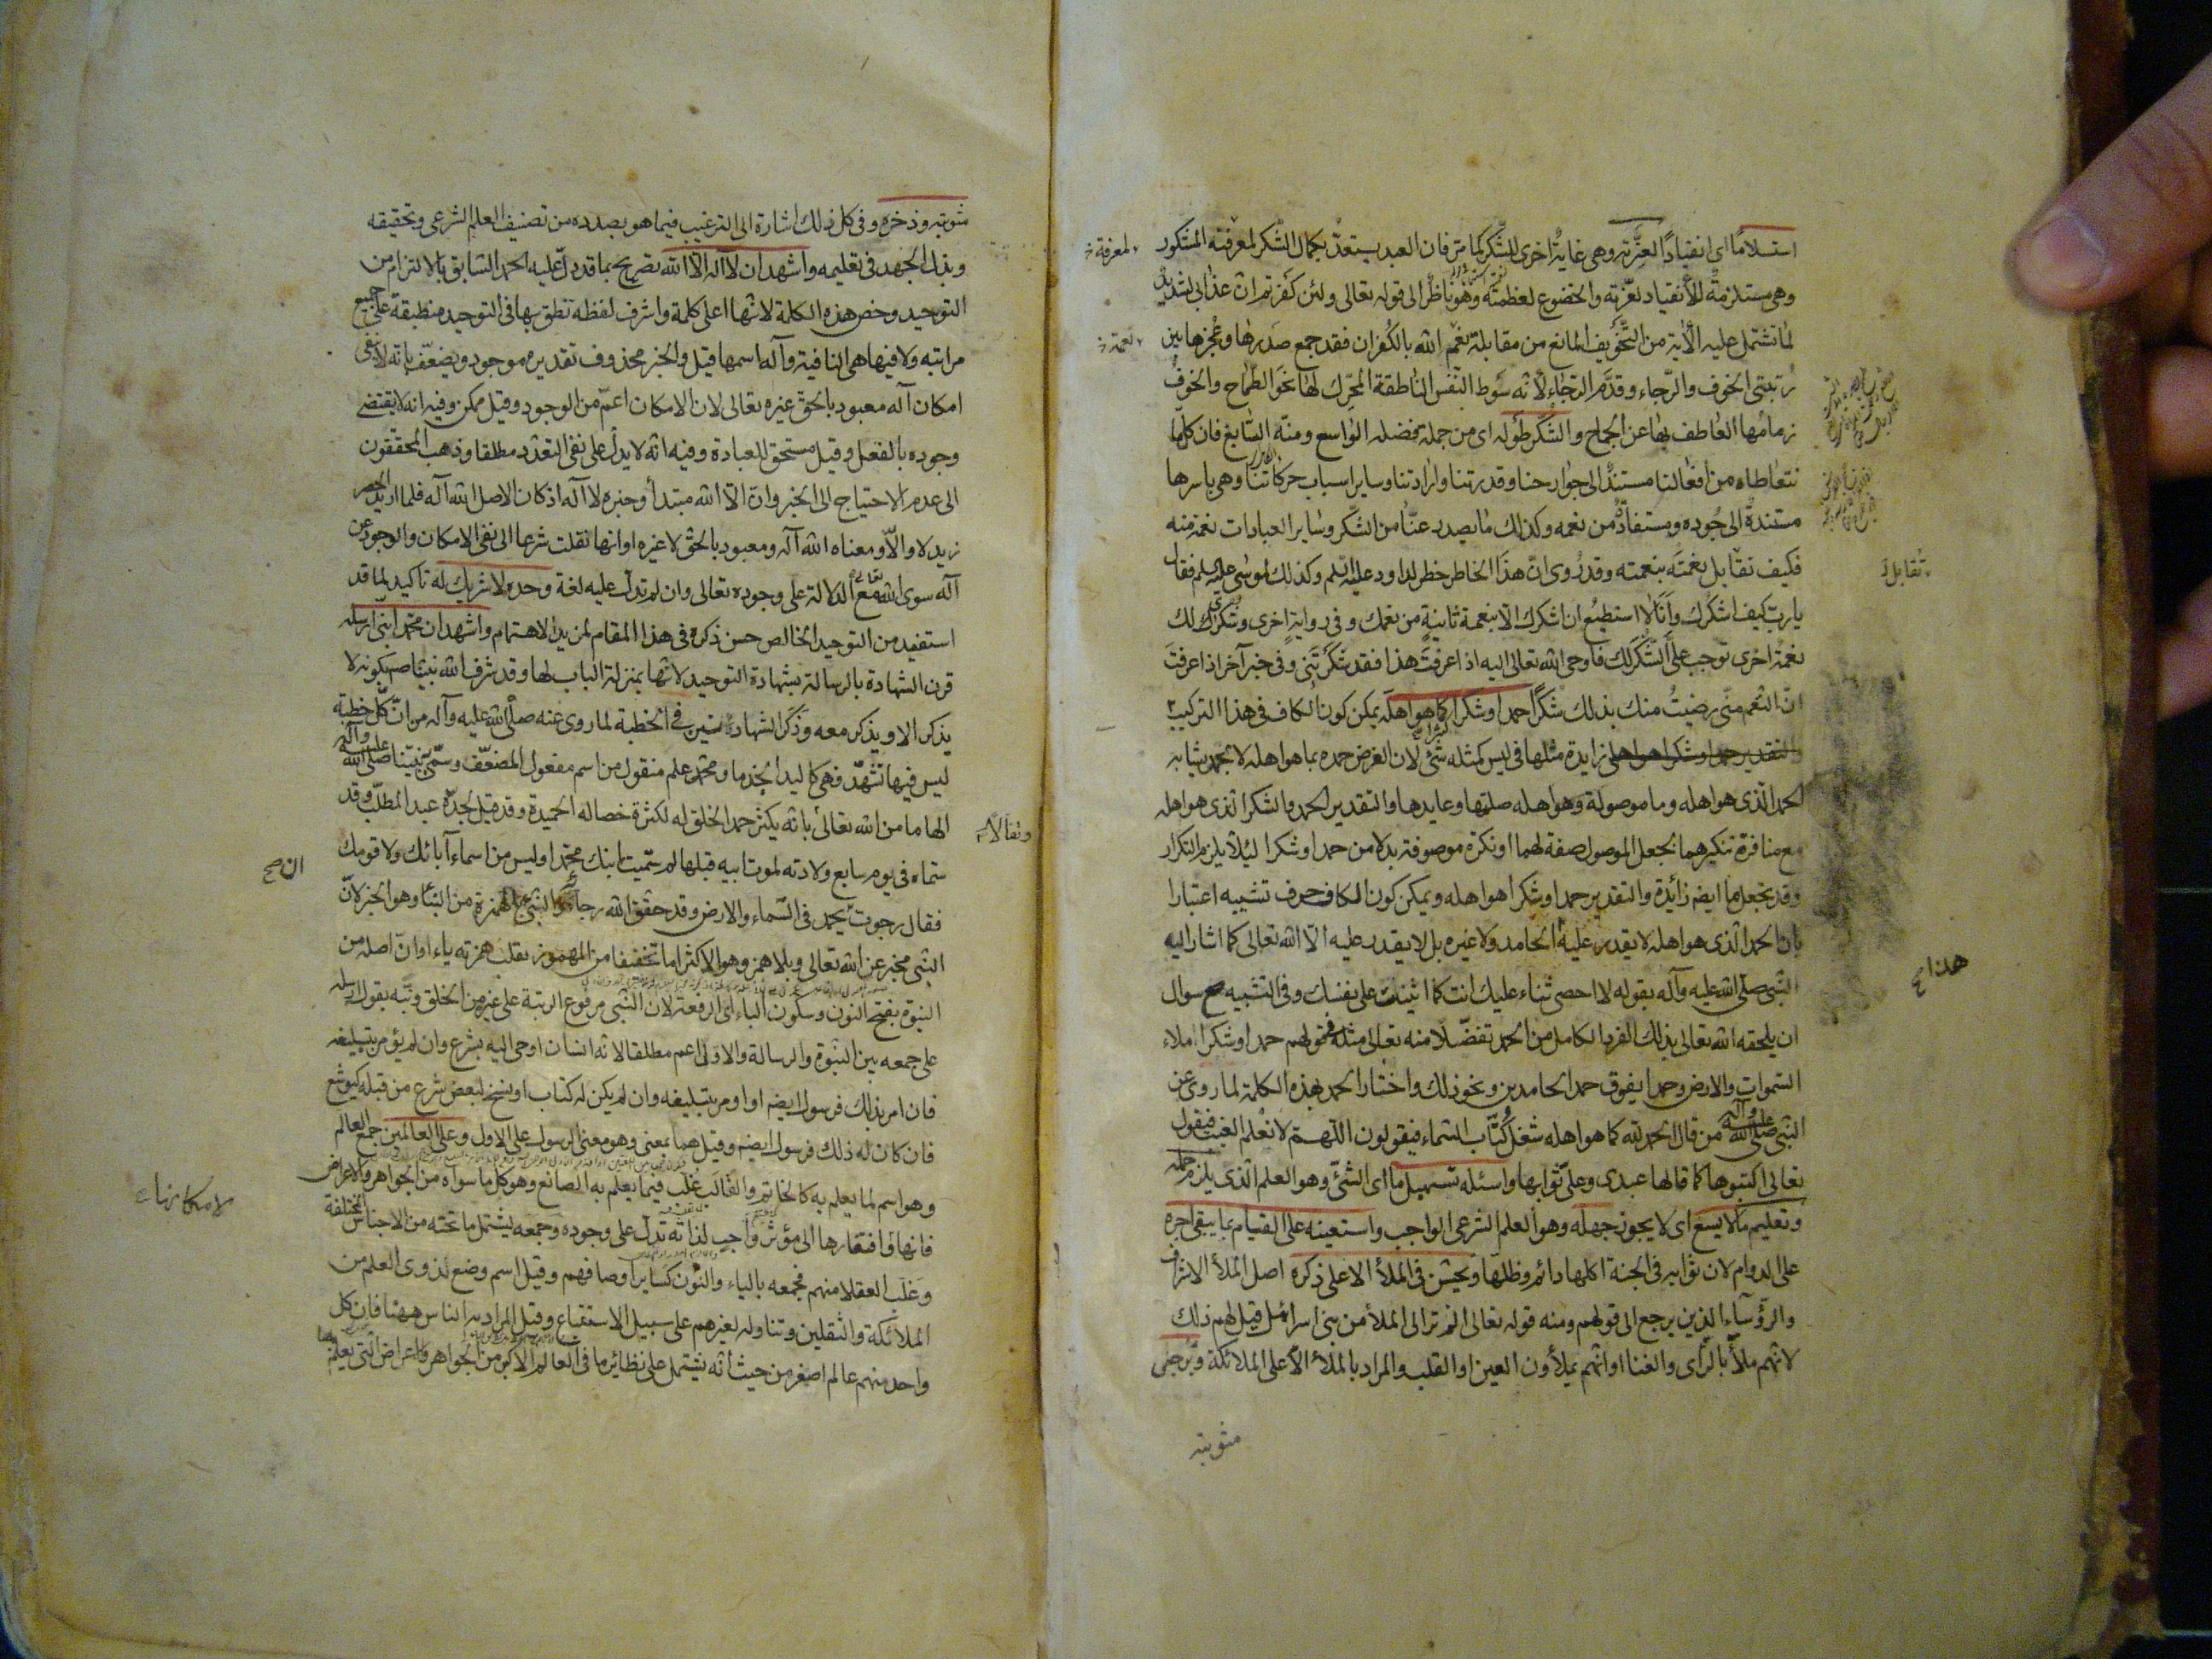 استسلاما اى انقيادا لعزته وهى غاية اخرى للشكر كما مر فان العبد يستعد بكمال الشكر لمعرفة المشكور
وهى مستلزمة للانقياد لعزته والخضوع لعظمته وهو ناظر الى قوله تعالى ولئن كفرتم ان عذابى لشديد
لما تشتمل عليه الآية من التخويف المانع من مقابلة نعم الله بالكفران فقد جمع صدرها وعجزها بين
رتبتى الخوف والرجاء وقدم الرجاء لانه سوط النفس الناطقة المحرك لها نحو الطماح والخوف
زمامها العاطف بها عن الجماح والشكر طوله اى من جملة فضله الواسع ومنه السابغ فان كل ما
نتعاطاه من افعالنا مستند الى جوارحنا وقدرتنا وارادتنا وساير اسباب حركاتنا وهى باسرها
مستندة الى جوده ومستفادة من نعمه وكذلك ما يصدر عنا من الشكر وساير العبادات نعمة منه
فكيف تقابل نعمته بنعمته وقد روى ان هذا الخاطر خطر لداود عليه السلم وكذلك لموسى عليه السلم فقال
يا رب كيف اشكرك وانا لا استطيع ان اشكرك الا بنعمة ثانية من نعمك وفى رواية اخرى وشكرى لك
نعمة اخرى توجب على الشكر لك فاوحى الله تعالى اليه اذا عرفت هذا فقد شكرتنى وفى خبر آخر اذا عرفت
ان النعم منى رضيت منك بذلك شكرا حمدا وشكرا كما هو اهله يمكن كون الكاف فى هذا التركيب
زايدة مثلها فى ليس كمثله شئ لان الغرض حمده بما هو اهله لا بحمد يشابه
الحمد الذى هو اهله وما موصولة وهو اهله صلتها وعايدها والتقدير الحمد والشكر الذى هو اهله
مع منافرة تنكيرهما بجعل الموصول صفة لهما او نكرة موصوفة بدلا من حمدا وشكرا ليلا يلزم التكرار
وقد يجعل ما ايضا زائدة والتقدير حمدا وشكرا هو اهله ويمكن كون الكاف حرف تشبيه اعتبارا
بان الحمد الذى هو اهله لا يقدر عليه الحامد ولا غيره بل لا يقدر عليه الا الله تعالى كما اشار اليه
النبى صلى الله عليه وآله بقوله لا احصى ثناء عليك انت كما اثنيت على نفسك وفى التشبيه ح سوال
ان يلحقه الله تعالى بذلك الفرد الكامل من الحمد تفضلا منه تعالى مثله فى قولهم حمدا وشكرا ملاء
السموات والارض وحمدا يفوق حمد الحامدين ونحو ذلك واختار الحمد بهذه الكلمة لما روى عن
النبى صلى الله عليه وآله من قال الحمد لله كما هو اهله شغل كتاب السماء فيقولون اللهم لا نعلم الغيب فيقول
تعالى اكتبوها كما قالها عبدى وعلى ثوابها واسئله تسهيل ما اى الشئ وهو العلم الذى يلزم حمله
وتعليم ما لا يسع اى لا يجوز جهله وهو العلم الشرعى الواجب واستعينه على القيام بما يبقى اجره
على الدوام لان ثوابه فى الجنة اكلها دائم وظلها ويحسن فى الملأ الاعلى ذكره اصل الملأ الاشراف
والرؤساء الذين يرجع الى قولهم ومنه قوله تعالى الم تر الى الملأ من بنى اسرائيل قيل لهم ذلك
لانهم ملأ بالرأى والغنا او انهم يملأون العين او القلب والمراد بالملأ الاعلى الملائكة ويرجى
مثوبته
لمعرفة
نعمة
تقابل
هذا صح
مثوبته وذخره وفى كل ذلك اشارة الى الترغيب فيما هو بصدده من تصنيف العلم الشرعى وتحقيقه
وبذل الجهد فى تعليمه واشهد ان لا اله الا الله تصريح بما قد دل عليه الحمد السابق بالالتزام من
التوحيد وخص هذه الكلمة لانها اعلى كلمة واشرف لفظة نطق بها فى التوحيد منطبقة على جميع
مراتبه ولا فيها هى النافية وآله اسمها قيل والخبر محذوف تقديره موجود ويضعف بانه لا ينفى
امكان آله معبود بالحق غيره تعالى لان الامكان اعم من الوجود وقيل ممكن وفيه انه لا يقتضى
وجوده بالفعل وقيل مستحق للعبادة وفيه انه لا يدل على نفى التعدد مطلقا وذهب المحققون
الى عدم الاحتياج الى الخبر وان الا الله مبتدأ وخبره لا آله اذ كان الاصل الله آله فلما اريد الحصر
زيد لا والا ومعناه الله آله ومعبود بالحق لا غيره او انها نقلت شرعا الى نفى الامكان والوجود عن
آله سوى الله مع الدلالة على وجوده تعالى وان لم تدل عليه لغة وحده لا شريك له تاكيد لما قد
استفيد من التوحيد الخالص حسن ذكره فى هذا المقام لمزيد الاهتمام واشهد ان محمدا نبى ارسله
قرن الشهادة بالرسالة بشهادة التوحيد لانها بمنزلة الباب لها وقد شرف الله نبينا صم بكونه لا
يذكر الا ويذكر معه وذكر الشهادتين فى الخطبة لما روى عنه صلى الله عليه وآله من ان كل خطبة
ليس فيها تشهد فهى كاليد الجذما ومحمد علم منقول من اسم مفعول المضعف وسمى به نبينا صلى الله عليه وآله
الهاما من الله تعالى بانه يكثر حمد الخلق له لكثرة خصاله الحميدة وقد قيل لجده عبد المطلب وقد
سماه فى يوم سابع ولادته لموت ابيه قبلها لم سميت ابنك محمدا وليس من اسماء آبائك ولا قومك
فقال رجوت يحمد فى السماء والارض وقد حقق الله رجاءه والنبى بالهمزة من النبأ وهو الخبر لان
النبى مخبر عن الله تعالى وبلا همز وهو الاكثر اما تخفيفا من المهموز بقلب همزته ياء او ان اصله من
النبوة بفتح النون وسكون الباء اى الرفعة لان النبى مرفوع الرتبة على غيره من الخلق ونبه بقوله ارسله
على جمعه بين النبوة والرسالة والاولى اعم مطلقا لانه انسان اوحى اليه بشرع وان لم يؤمر بتبليغه
فان امر بذلك فرسول ايضا او امر بتبليغه وان لم يكن له كتاب او نسخ لبعض شرع من قبله كيوشع
فان كان له ذلك فرسول ايضا وقيل هما بمعنى وهو معنى الرسول على الاول وعلى العالمين جمع العالم
وهو اسم لما يعلم به كالخاتم والقالب غلب فيما يعلم به الصانع وهو كل ما سواه من الجواهر والاعراض
فانها وافتقارها الى مؤثر واجب لذاته تدل على وجوده وجمعه ليشتمل ما تحته من الاجناس المختلفة
وغلب العقلا منهم فجمعه بالياء والنون كساير اوصافهم وقيل اسم وضع لذوى العلم من
الملائكة والثقلين وتناوله لغيرهم على سبيل الاستتباع وقيل المراد به الناس ههنا فان كل
واحد منهم عالم اصغر من حيث انه يشتمل على نظائر ما فى العالم الاكبر من الجواهر والاعراض التى يعلم بها
ان صح
لامكانها